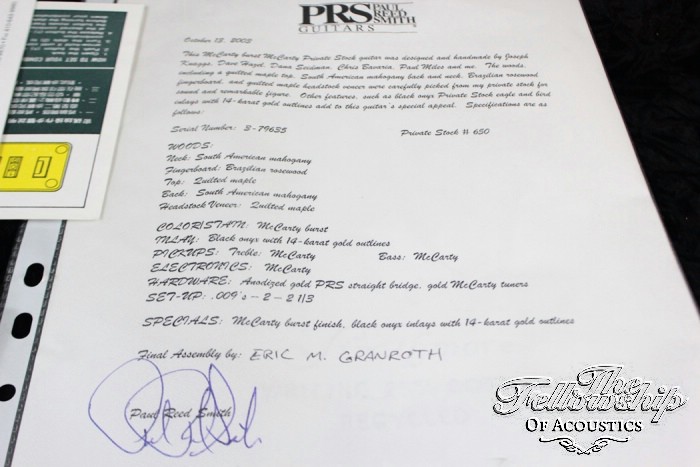 PRS PAUL REED SMITH
GUITARS
October 13, 2003
This McCarty burst McCarty Private Stock guitar was designed and handmade by Joseph
Knaggs, Dave Hazel, Dana Seidman, Chris Bavaria, Paul Miles and me. The woods,
including a quilted maple top, South American mahogany back and neck, Brazilian rosewood
fingerboard, and quilted maple headstock veneer were carefully picked from my private stock for
sound and remarkable figure. Other features, such as black onyx Private Stock eagle and bird
inlays with 14-karat gold outlines add to this guitar's special appeal. Specifications are as
follows:
Serial Number: 3-79635 Private Stock # 650
WOODS:
Neck: South American mahogany
Fingerboard: Brazilian rosewood
Top: Quilted maple
Back: South American mahogany
Headstock Veneer: Quilted maple
COLOR/STAIN: McCarty burst
INLAY: Black onyx with 14-karat gold outlines
PICKUPS: Treble: McCarty Bass: McCarty
ELECTRONICS: McCarty
HARDWARE: Anodized gold PRS straight bridge, gold McCarty tuners
SET-UP: .009's - 2 - 2 1/3
SPECIALS: McCarty burst finish, black onyx inlays with 14-karat gold outlines
Final Assembly by: ERIC M. GRANROTH
Paul Reed Smith
The
Fellowship
OF ACOUSTICS